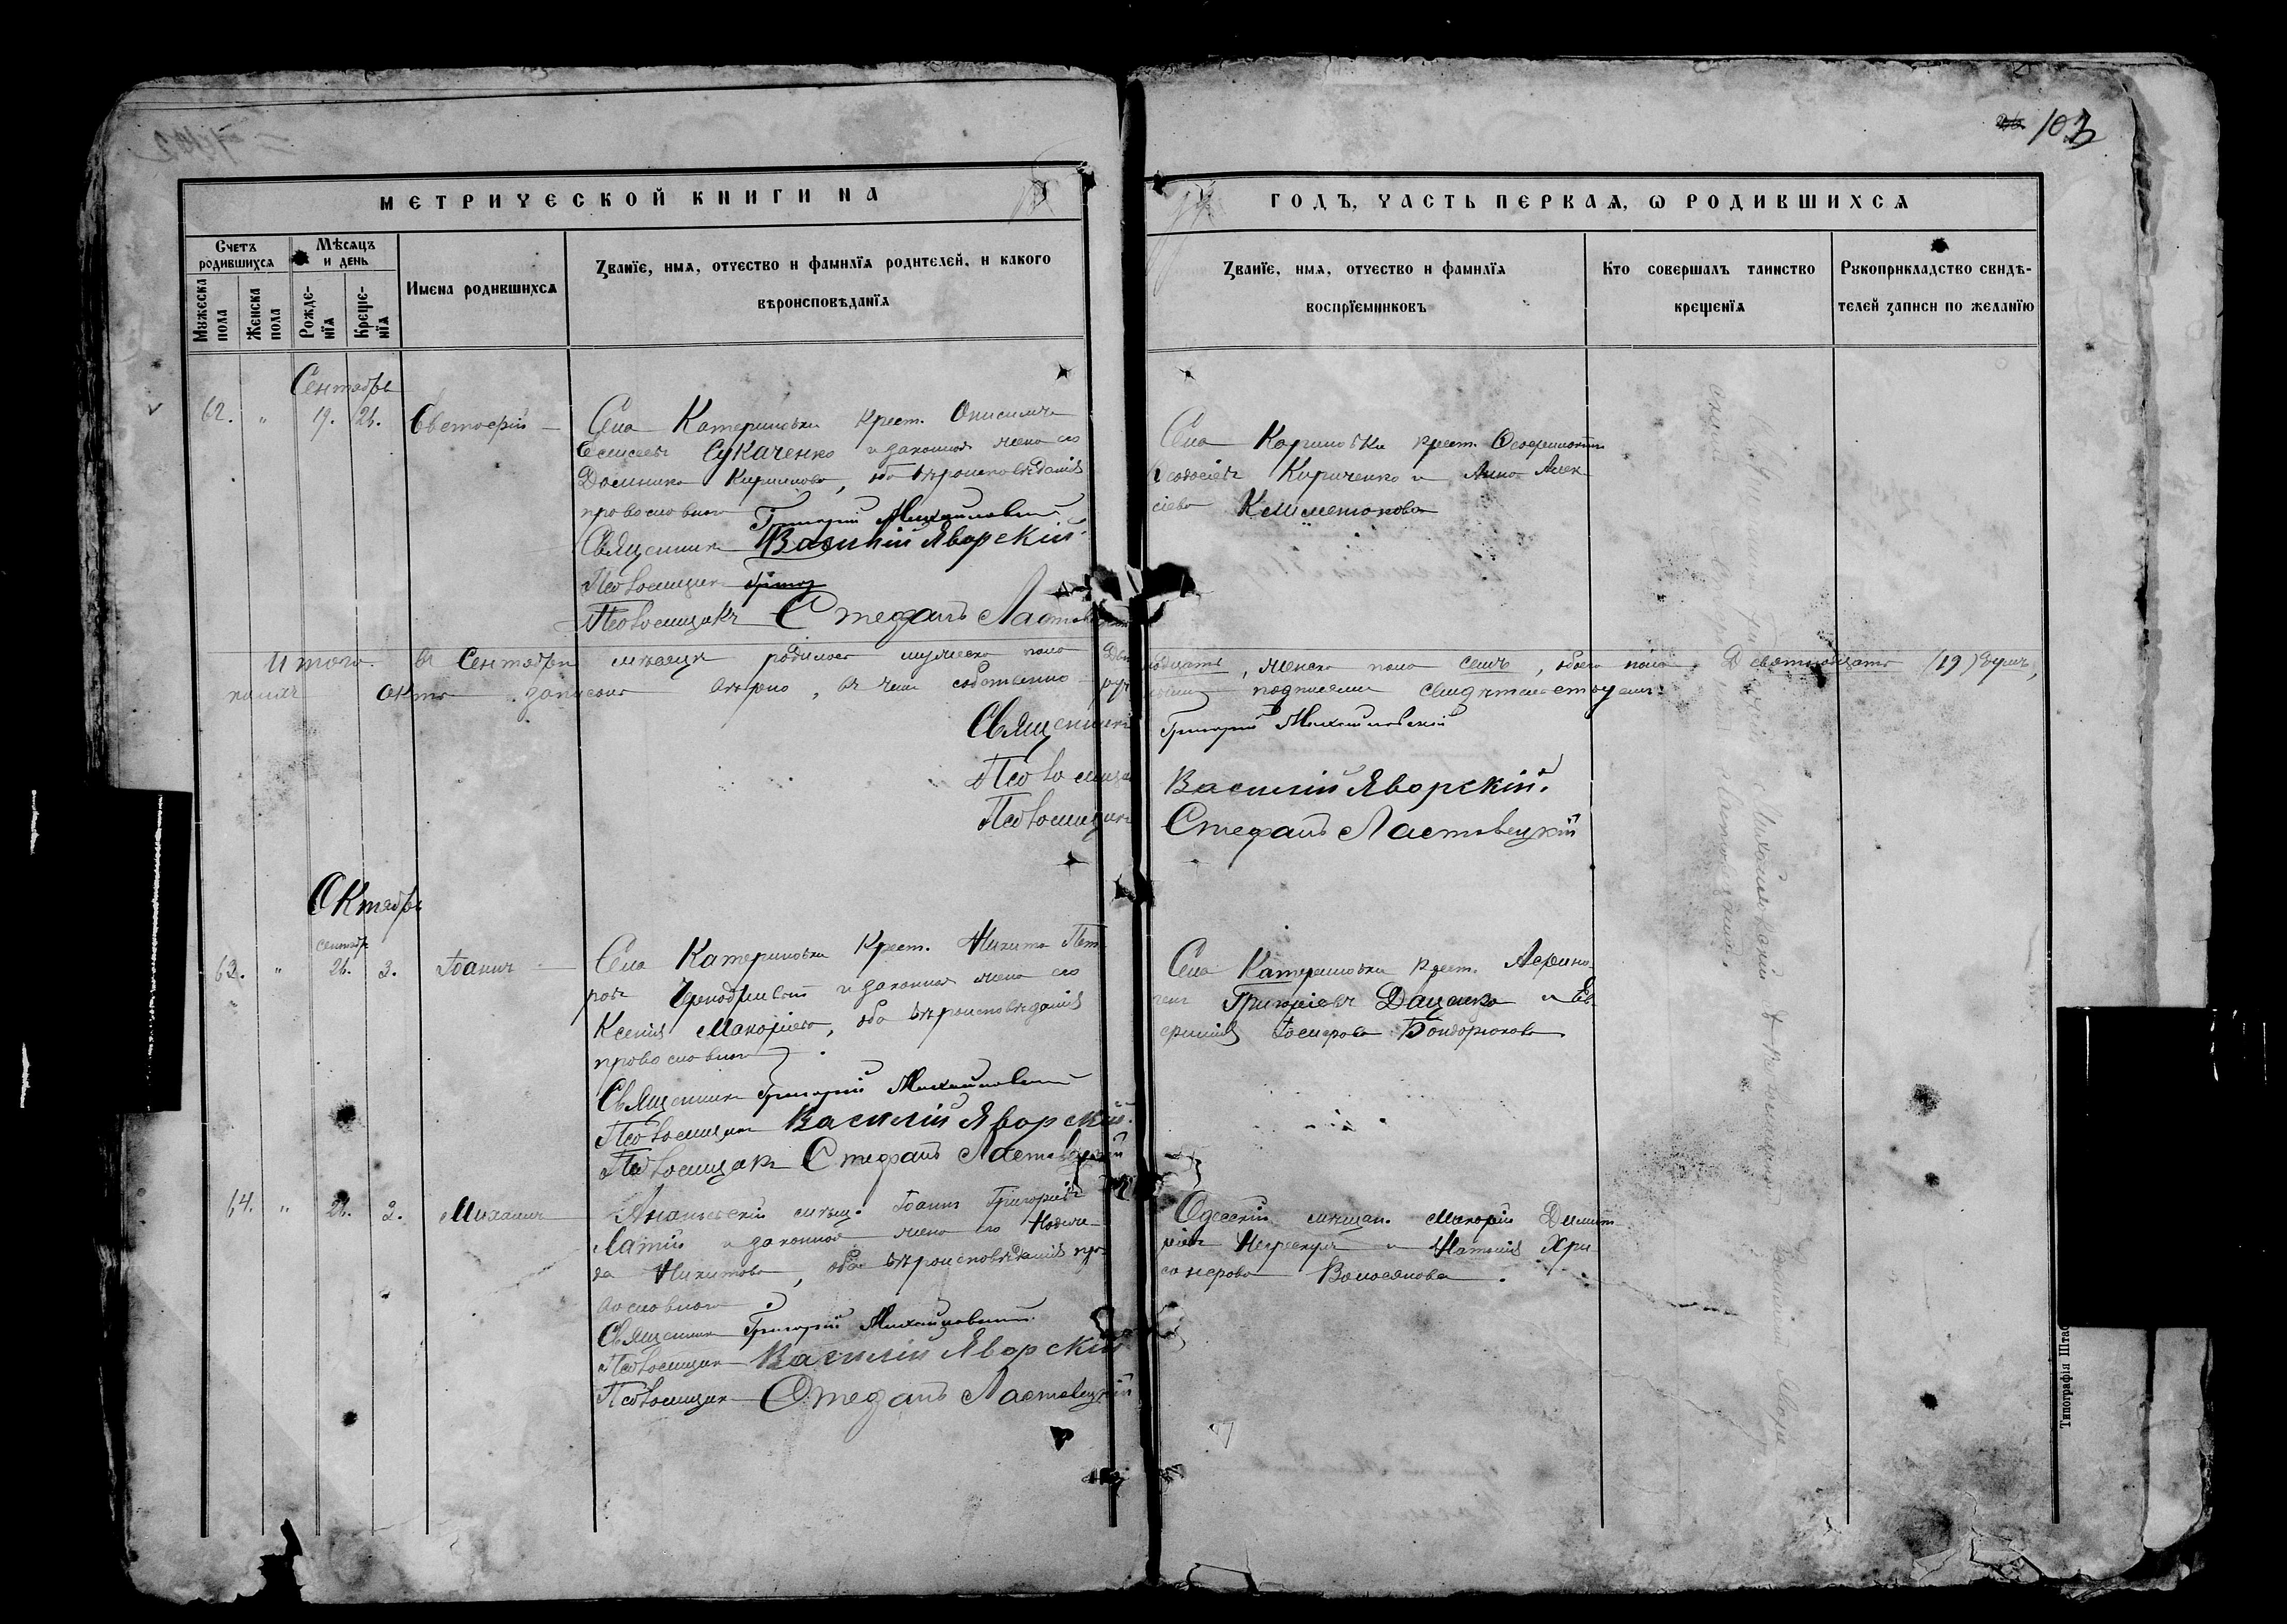 103
МЕТРИЧЕСКОЙ КНИГИ НА
ГОДЪ, ЧАСТЬ ПЕРВАЯ, Ѡ РОДИВШИХСЯ
Счетъ родившихся
Мѣсяцъ и день
Имена родившихся
Званїе, имя, отчество и фамилїя родителей, и какого
вѣроисповѣданїя
Мужеска пола
Женска пола
Рожде-нїя
Креще-нїя
Званїе, имя, отчество и фамилїя
воспрїемниковъ
Кто совершалъ таинство
крещенїя
Рукоприкладство свидѣ-
телей записи по желанїю
Сентябрь
62. " 19. 26. Евтефій
Села Катериновки крест. Онисимъ
Елисеевъ Сукаченко и законная жена его
Домника Кириллова, оба вѣроисповѣданія
православнаго
Григорій Михайловскій
Священникъ
Василій Яворскій
Псаломщикъ
Псаломщикъ Стефанъ Ластовецкій
Села Кариновки крест.
Кириченко и Анна Алек-
сіева
Итого въ Сентябрѣ мѣсяцѣ родилось мужеска пола Двѣнадцать, женска пола семь, обоего пола Девятнадцать (19) душъ,
актъ записанъ вѣрно, въ чемъ собственно-ручными подписями свидѣтельствуемъ:
Священникъ Григорій Михайловскій
Псаломщикъ Василій Яворскій.
Псаломщикъ Стефанъ Ластовецкій
Октябрь
сентябр
63. " 26. 3. Іоаннъ
Села Катериновки Крест. Никита Пет-
ровъ и законная жена его
Ксенія Макарiева, оба вѣроисповѣданія
православнаго.
Священникъ Григорій Михайловскій
Псаломщикъ Василій Яворскій.
Псаломщикъ Стефанъ Ластовецкій
Села Катериновки крест. Афино-
генъ Григоріевъ Даценко и Ев-
фимія Іосифова Бондарюкова
64. " 26. 3. Михаилъ
Ананьевскій мѣщ. Іоаннъ Григорьевъ
Латій и законная жена его Надеж-
да Никитова, оба вѣроисповѣданія пра-
вославнаго.
Священникъ Григорій Михайловскій
Псаломщикъ Василій Яворскій
Псаломщикъ Стефанъ Ластовецкій
Одесскій мѣщан. Макарій Димит-
ріевъ Негрескулъ и Наталія Хри-
санфова Волосянова.
Типографія Штаб